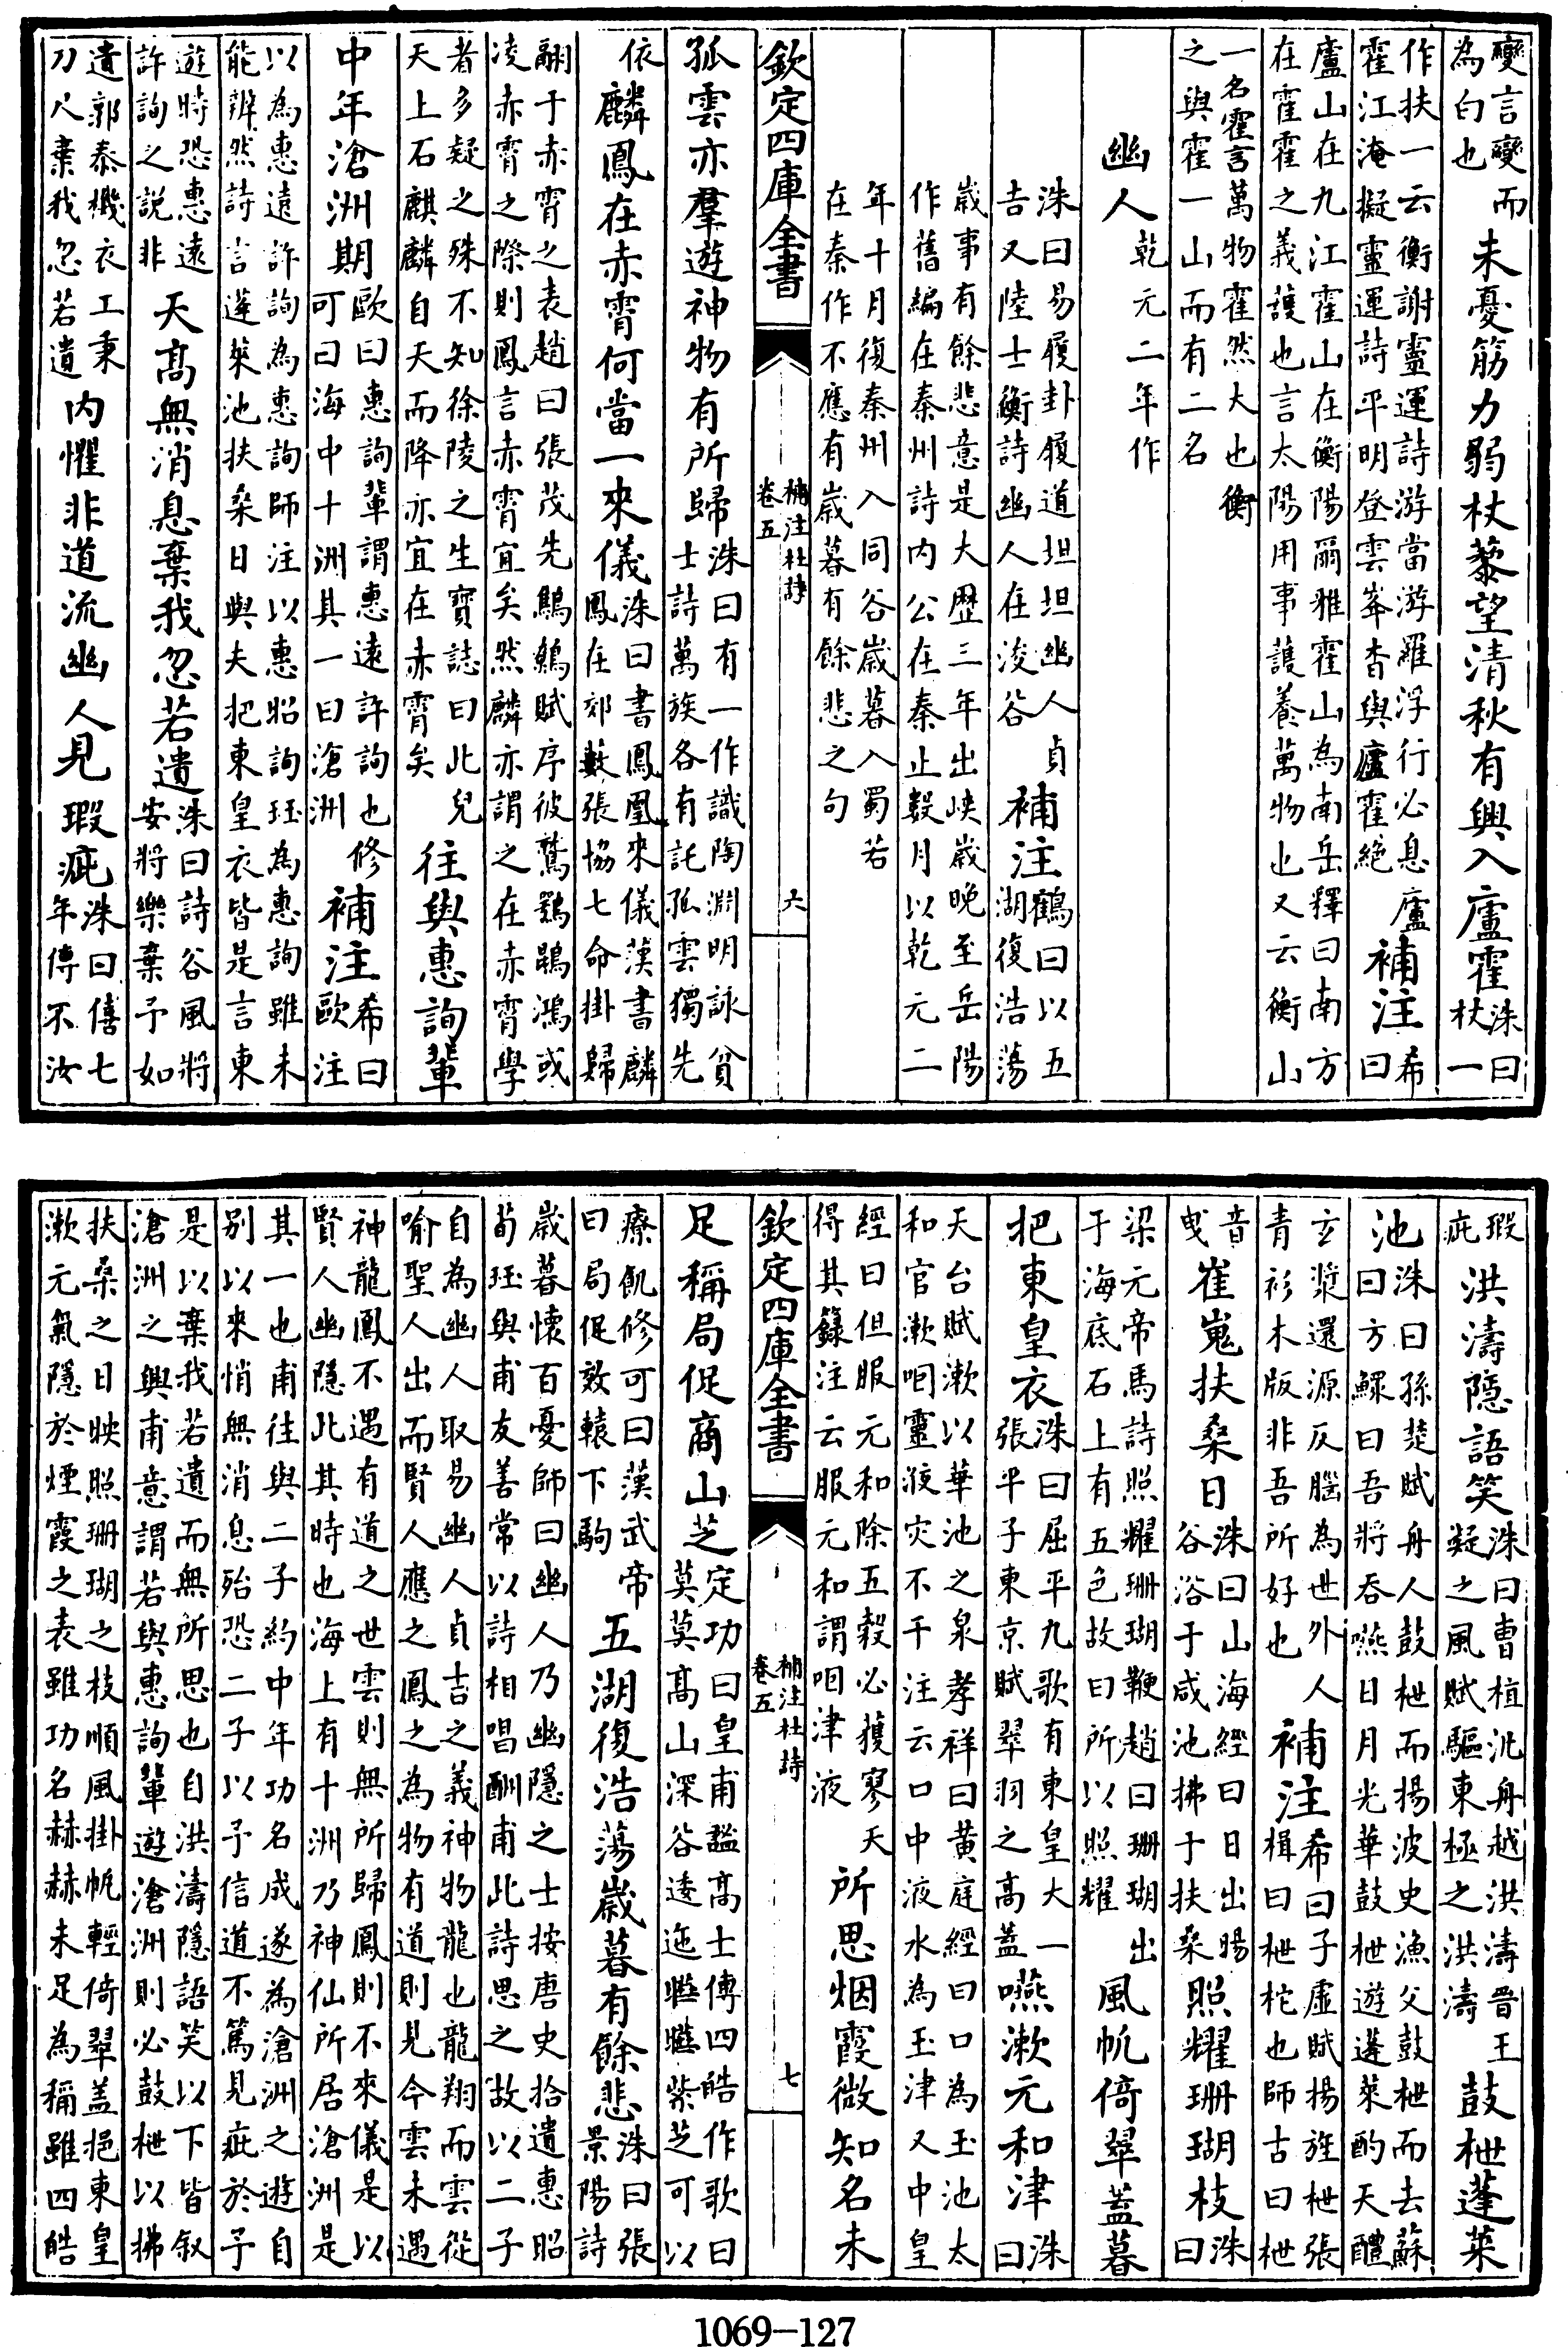 變言變而
為白也
未憂筋力弱杖藜望清秋有興入廬霍
洙曰
杖一
作扶一云衡謝靈運詩游當游羅浮行必息廬
霍江淹擬靈運詩平明登雲峯杳與廬霍絶
補注
希
曰
廬山在九江霍山在衡陽爾雅霍山為南岳釋曰南方
在霍霍之義護也言太陽用事護養萬物也又云衡山
一名霍言萬物霍然大也衡
之與霍一山而有二名
幽人
乾元二年作
洙曰易履卦履道坦坦幽人貞
吉又陸士衡詩幽人在浚谷
補注
鶴曰以五
湖復浩蕩
歲事有餘悲意是大歴三年出峽歲晚至岳陽
作舊編在秦州詩内公在秦止數月以乾元二
年十月復秦州入同谷歲暮入蜀若
在秦作不應有歲暮有餘悲之句
欽定四庫全書
補注杜詩
卷五
六
孤雲亦羣遊神物有所歸
洙曰有一作識陶淵明詠貧
士詩萬族各有託孤雲獨先
依
麟鳳在赤霄何當一來儀
洙曰書鳳凰來儀漢書麟
鳳在郊藪張協七命掛歸
翮于赤霄之表趙曰張茂先鷦鷯賦序彼鷲鶚鵾鴻或
凌赤霄之際則鳳言赤霄宜矣然麟亦謂之在赤霄學
者多疑之殊不知徐陵之生寶誌曰此兒
天上石麒麟自天而降亦宜在赤霄矣
往與惠詢輩
中年滄洲期
歐曰惠詢輩謂惠遠許詢也修
可曰海中十洲其一曰滄洲
補注
希曰
歐注
以為惠遠許詢為惠詢師注以惠昭詢珏為惠詢雖未
能辨然詩言蓬萊池扶桑日與夫把東皇衣皆是言東
遊時恐惠遠
許詢之説非
天髙無消息棄我忽若遺
洙曰詩谷風將
安將樂棄予如
遺郭泰機衣工秉
刀尺棄我忽若遺
内懼非道流幽人見瑕疵
洙曰僖七
年傳不汝
瑕
疵
洪濤隱語笑
洙曰曹植沇舟越洪濤晋王
凝之風賦驅東極之洪濤
鼓枻蓬萊
池
洙曰孫楚賦舟人鼓枻而揚波史漁父鼓枻而去蘇
曰方鱞曰吾將吞嚥日月光華鼓枻遊蓬萊酌天醴
玄漿還源反腦為世外人
青衫木版非吾所好也
補注
希曰子虚賦揚旌枻張
楫曰枻柁也師古曰枻
音
曳
崔嵬扶桑日
洙曰山海經曰日出暘
谷浴于咸池拂于扶桑
照耀珊瑚枝
洙
曰
梁元帝馬詩照耀珊瑚鞭趙曰珊瑚出
于海底石上有五色故曰所以照耀
風帆倚翠葢暮
把東皇衣
洙曰屈平九歌有東皇大一
張平子東京賦翠羽之髙葢
嚥漱元和津
洙
曰
天台賦漱以華池之泉孝祥曰黄庭經曰口為玉池太
和官漱咽靈液灾不干注云口中液水為玉津又中皇
經曰但服元和除五穀必獲寥天
得其籙注云服元和謂咽津液
所思烟霞微知名未
欽定四庫全書
補注杜詩
卷五
七
足稱局促商山芝
定功曰皇甫謐髙士傳四皓作歌曰
莫莫髙山深谷逶迤曄曄紫芝可以
療飢修可曰漢武帝
曰局促效轅下駒
五湖復浩蕩歲暮有餘悲
洙曰張
景陽詩
歲暮懷百憂師曰幽人乃幽隱之士按唐史拾遺惠昭
荀珏與甫友善常以詩相唱酬甫此詩思之故以二子
自為幽人取易幽人貞吉之義神物龍也龍翔而雲從
喻聖人出而賢人應之鳳之為物有道則見今雲未遇
神龍鳳不遇有道之世雲則無所歸鳳則不來儀是以
賢人幽隱此其時也海上有十洲乃神仙所居滄洲是
其一也甫往與二子約中年功名成遂為滄洲之遊自
别以來悄無消息殆恐二子以予信道不篤見疵於予
是以棄我若遺而無所思也自洪濤隱語笑以下皆叙
滄洲之興甫意謂若與惠詢輩遊滄洲則必鼓枻以拂
扶桑之日映照珊瑚之枝順風掛帆輕倚翠盖挹東皇
漱元氣隱於煙霞之表雖功名赫赫未足為稱雖四皓
1069-127